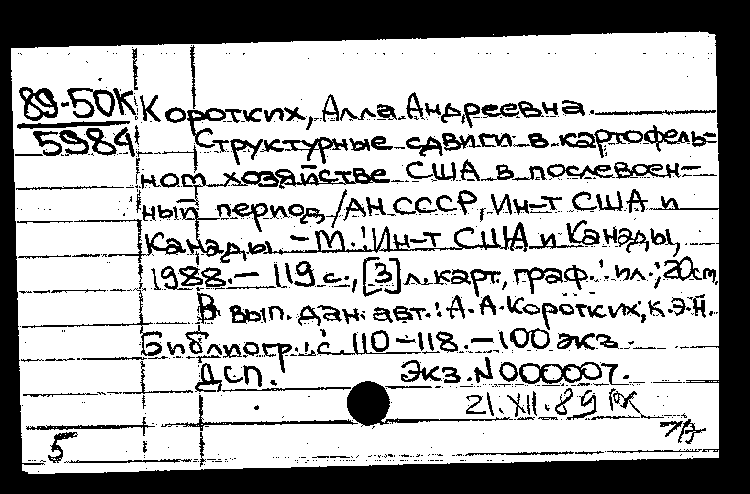 89-50К Коротких, Алла Андреевна.
5984 Структурные сдвиги в картофель=
ном хозяйстве США в послевоен-
ный период /АН СССР, Ин-т США и
Канады. - М.: Ин-т США и Канады,
1988. - 119 с., [3] л. карт, граф.: ил.; 20см.
В вып. дан. авт.: А.А. Коротких, к.э.н.
Библиогр.: с. 110-118. - 100 экз.
ДСП. Экз. N 000007.
21.XII.89
5